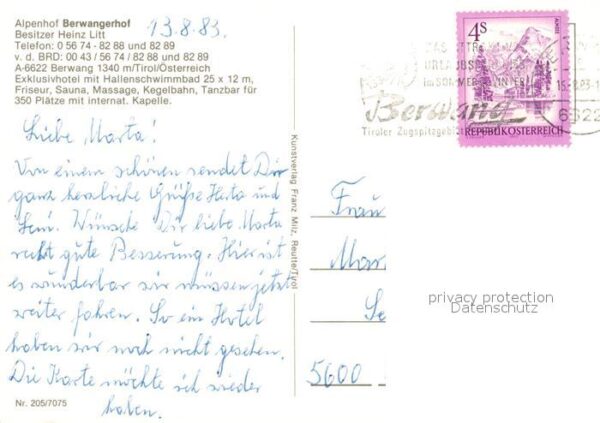 Alpenhof Berwangerhof
Besitzer Heinz Litt
Telefon: 0 56 74 - 82 88 und 82 89
v. d. BRD: 00 43 / 56 74 / 82 88 und 82 89
A-6622 Berwang 1340 m/Tirol/Österreich
Exklusivhotel mit Hallenschwimmbad 25 x 12 m,
Friseur, Sauna, Massage, Kegelbahn, Tanzbar für
350 Plätze mit internat. Kapelle.
13.8.83.
Liebe Marta!
Von einem schönen sendet Dir
ganz herzliche Grüße Herta und
Wünsche Dir liebe Marta
recht gute Besserung. Hier ist
es wunderbar wir müssen jetzt
weiter fahren. So ein Hotel
haben wir noch nicht gesehen.
Die Karte möchte ich wieder
haben.
Nr. 205/7075
Kunstverlag Franz Milz, Reutte/Tirol
4 S
REPUBLIK ÖSTERREICH
URLAUBS
im SOMMER
Berwang
Tiroler Zugspitzgebiet
6622
Frau
Mar
Se
5600
privacy protection
Datenschutz